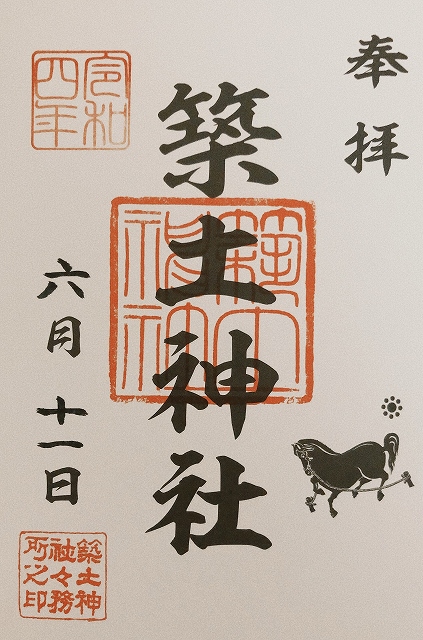 奉拝
築土神社
令和四年
六月十一日
築土神
社々務
所之印
築土神社